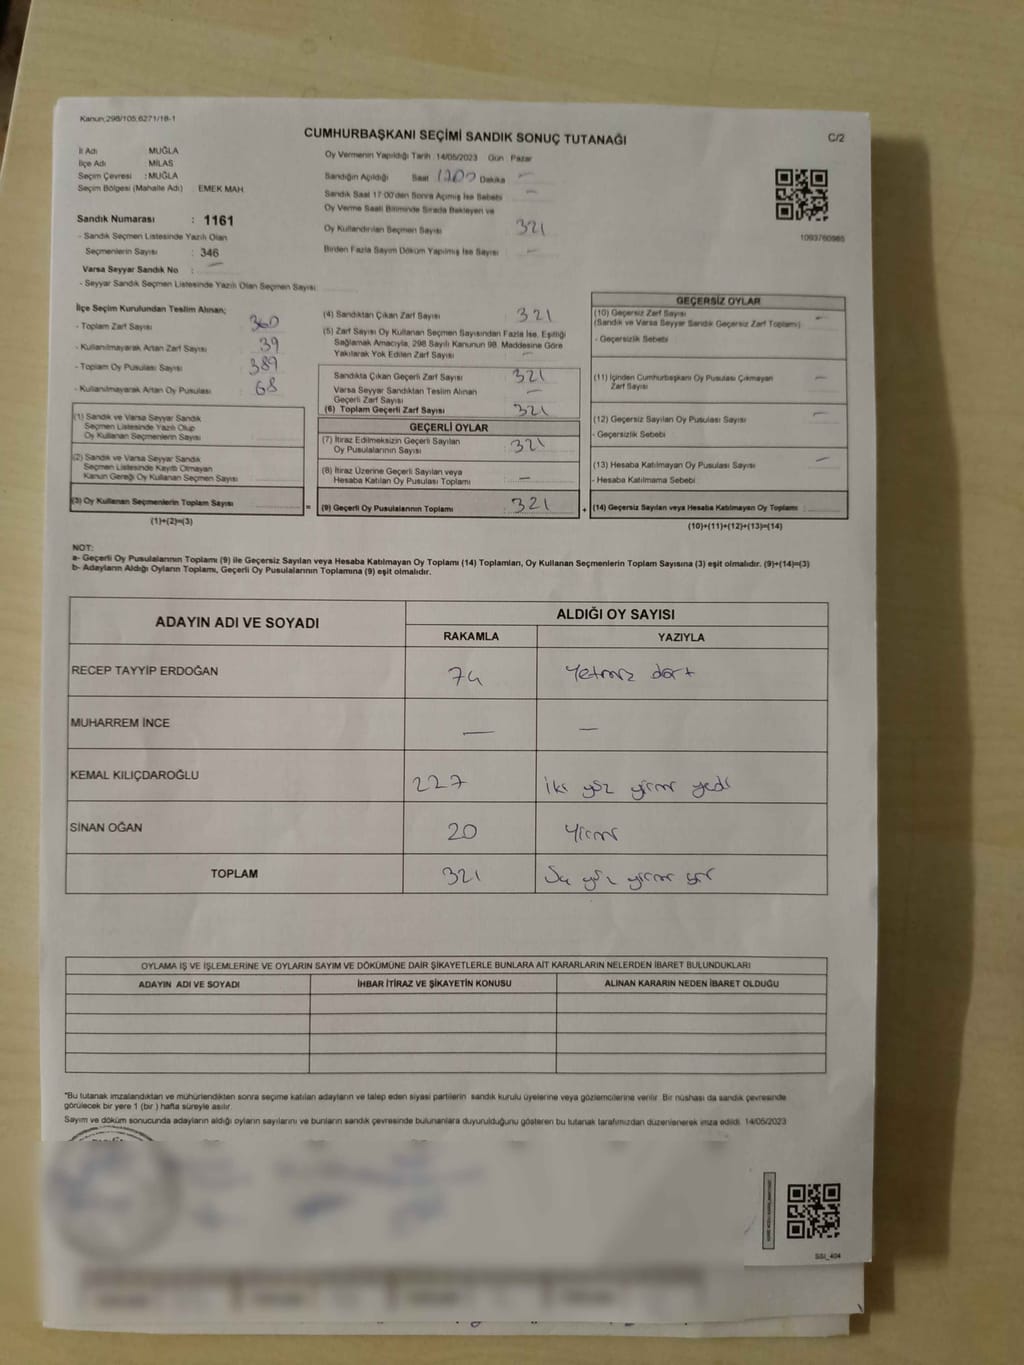 Kanun;298/105,6271/18-1
CUMHURBAŞKANI SEÇİMİ SANDIK SONUÇ TUTANAĞI
C/2
İl Adı : MUĞLA
İlçe Adı : MİLAS
Seçim Çevresi : MUĞLA
Seçim Bölgesi (Mahalle Adı) : EMEK MAH.
Sandık Numarası : 1161
- Sandık Seçmen Listesinde Yazılı Olan
Seçmenlerin Sayısı : 346
Varsa Seyyar Sandık No : —
- Seyyar Sandık Seçmen Listesinde Yazılı Olan Seçmen Sayısı:
Oy Vermenin Yapıldığı Tarih :14/05/2023 Gün :Pazar
Sandığın Açıldığı Saat 1700 Dakika —
Sandık Saat 17:00'den Sonra Açılmış İse Sebebi —
Oy Verme Saati Bitiminde Sırada Bekleyen ve
Oy Kullandırılan Seçmen Sayısı 321
Birden Fazla Sayım Döküm Yapılmış İse Sayısı —
1093760985
İlçe Seçim Kurulundan Teslim Alınan;
- Toplam Zarf Sayısı : 360
- Kullanılmayarak Artan Zarf Sayısı : 39
- Toplam Oy Pusulası Sayısı : 389
- Kullanılmayarak Artan Oy Pusulası : 68
(1) Sandık ve Varsa Seyyar Sandık
Seçmen Listesinde Yazılı Olup
Oy Kullanan Seçmenlerin Sayısı :
(2) Sandık ve Varsa Seyyar Sandık
Seçmen Listesinde Kayıtlı Olmayan
Kanun Gereği Oy Kullanan Seçmen Sayısı :
(3) Oy Kullanan Seçmenlerin Toplam Sayısı :
(1)+(2)=(3)
(4) Sandıktan Çıkan Zarf Sayısı : 321
(5) Zarf Sayısı Oy Kullanan Seçmen Sayısından Fazla İse, Eşitliği
Sağlamak Amacıyla, 298 Sayılı Kanunun 98. Maddesine Göre
Yakılarak Yok Edilen Zarf Sayısı : —
Sandıkta Çıkan Geçerli Zarf Sayısı : 321
Varsa Seyyar Sandıktan Teslim Alınan
Geçerli Zarf Sayısı : —
(6) Toplam Geçerli Zarf Sayısı : 321
GEÇERLİ OYLAR
(7) İtiraz Edilmeksizin Geçerli Sayılan
Oy Pusulalarının Sayısı : 321
(8) İtiraz Üzerine Geçerli Sayılan veya
Hesaba Katılan Oy Pusulası Toplamı : —
= (9) Geçerli Oy Pusulalarının Toplamı : 321
GEÇERSİZ OYLAR
(10) Geçersiz Zarf Sayısı : —
(Sandık ve Varsa Seyyar Sandık Geçersiz Zarf Toplamı)
- Geçersizlik Sebebi
(11) İçinden Cumhurbaşkanı Oy Pusulası Çıkmayan
Zarf Sayısı : —
(12) Geçersiz Sayılan Oy Pusulası Sayısı : —
- Geçersizlik Sebebi
(13) Hesaba Katılmayan Oy Pusulası Sayısı : —
- Hesaba Katılmama Sebebi
+ (14) Geçersiz Sayılan veya Hesaba Katılmayan Oy Toplamı :
(10)+(11)+(12)+(13)=(14)
NOT:
a- Geçerli Oy Pusulalarının Toplamı (9) ile Geçersiz Sayılan veya Hesaba Katılmayan Oy Toplamı (14) Toplamları, Oy Kullanan Seçmenlerin Toplam Sayısına (3) eşit olmalıdır. (9)+(14)=(3)
b- Adayların Aldığı Oyların Toplamı, Geçerli Oy Pusulalarının Toplamına (9) eşit olmalıdır.
ADAYIN ADI VE SOYADI
ALDIĞI OY SAYISI
RAKAMLA YAZIYLA
RECEP TAYYİP ERDOĞAN 74 Yetmiş dört
MUHARREM İNCE — —
KEMAL KILIÇDAROĞLU 227 İki yüz yirmi yedi
SİNAN OĞAN 20 Yirmi
TOPLAM 321 Üç yüz yirmi bir
OYLAMA İŞ VE İŞLEMLERİNE VE OYLARIN SAYIM VE DÖKÜMÜNE DAİR ŞİKAYETLERLE BUNLARA AİT KARARLARIN NELERDEN İBARET BULUNDUKLARI
ADAYIN ADI VE SOYADI İHBAR İTİRAZ VE ŞİKAYETİN KONUSU ALINAN KARARIN NEDEN İBARET OLDUĞU
*Bu tutanak imzalandıktan ve mühürlendikten sonra seçime katılan adayların ve talep eden siyasi partilerin sandık kurulu üyelerine veya gözlemcilerine verilir. Bir nüshası da sandık çevresinde
görülecek bir yere 1 (bir ) hafta süreyle asılır.
Sayım ve döküm sonucunda adayların aldığı oyların sayılarını ve bunların sandık çevresinde bulunanlara duyurulduğunu gösteren bu tutanak tarafımızdan düzenlenerek imza edildi. 14/05/2023
SSI_404